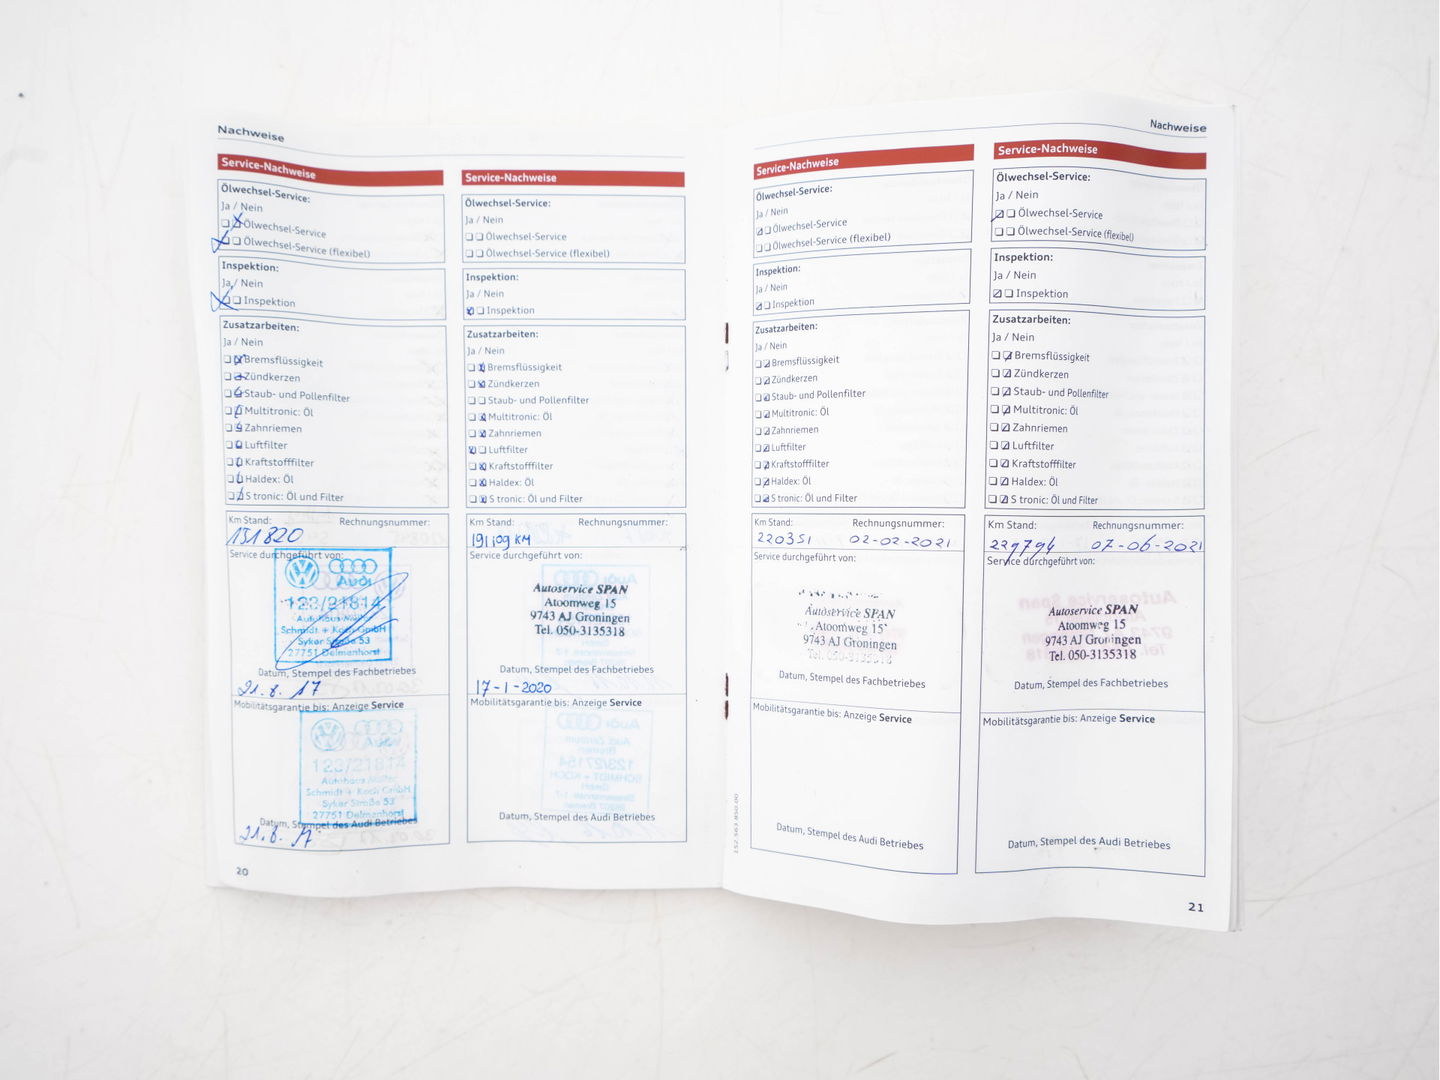 Nachweise
Service-Nachweise
Ölwechsel-Service:
Ja / Nein
Ölwechsel-Service
Ölwechsel-Service (flexibel)
Inspektion:
Ja / Nein
Inspektion
Zusatzarbeiten:
Ja / Nein
Bremsflüssigkeit
Zündkerzen
Staub- und Pollenfilter
Multitronic: Öl
Zahnriemen
Luftfilter
Kraftstofffilter
Haldex: Öl
S tronic: Öl und Filter
Km Stand: Rechnungsnummer:
151820
Service durchgeführt von:
Audi
123/21814
Autohaus Müller
Schmidt + Koch GmbH
Syker Straße 53
27751 Delmenhorst
Datum, Stempel des Fachbetriebes
21.8.17
Mobilitätsgarantie bis: Anzeige Service
Audi
123/21814
Autohaus Müller
Schmidt + Koch GmbH
Syker Straße 53
27751 Delmenhorst
Datum, Stempel des Audi Betriebes
21.8.17
20
Service-Nachweise
Ölwechsel-Service:
Ja / Nein
Ölwechsel-Service
Ölwechsel-Service (flexibel)
Inspektion:
Ja / Nein
Inspektion
Zusatzarbeiten:
Ja / Nein
Bremsflüssigkeit
Zündkerzen
Staub- und Pollenfilter
Multitronic: Öl
Zahnriemen
Luftfilter
Kraftstofffilter
Haldex: Öl
S tronic: Öl und Filter
Km Stand: Rechnungsnummer:
191109 KM
Service durchgeführt von:
Autoservice SPAN
Atoomweg 15
9743 AJ Groningen
Tel. 050-3135318
Datum, Stempel des Fachbetriebes
17-1-2020
Mobilitätsgarantie bis: Anzeige Service
Datum, Stempel des Audi Betriebes
Nachweise
Service-Nachweise
Ölwechsel-Service:
Ja / Nein
Ölwechsel-Service
Ölwechsel-Service (flexibel)
Inspektion:
Ja / Nein
Inspektion
Zusatzarbeiten:
Ja / Nein
Bremsflüssigkeit
Zündkerzen
Staub- und Pollenfilter
Multitronic: Öl
Zahnriemen
Luftfilter
Kraftstofffilter
Haldex: Öl
S tronic: Öl und Filter
Km Stand: Rechnungsnummer:
220351 02-02-2021
Service durchgeführt von:
Autoservice SPAN
Atoomweg 15
9743 AJ Groningen
Tel. 050-3135318
Datum, Stempel des Fachbetriebes
Mobilitätsgarantie bis: Anzeige Service
Datum, Stempel des Audi Betriebes
152.563.850.00
Service-Nachweise
Ölwechsel-Service:
Ja / Nein
Ölwechsel-Service
Ölwechsel-Service (flexibel)
Inspektion:
Ja / Nein
Inspektion
Zusatzarbeiten:
Ja / Nein
Bremsflüssigkeit
Zündkerzen
Staub- und Pollenfilter
Multitronic: Öl
Zahnriemen
Luftfilter
Kraftstofffilter
Haldex: Öl
S tronic: Öl und Filter
Km Stand: Rechnungsnummer:
229794 07-06-2021
Service durchgeführt von:
Autoservice SPAN
Atoomweg 15
9743 AJ Groningen
Tel. 050-3135318
Datum, Stempel des Fachbetriebes
Mobilitätsgarantie bis: Anzeige Service
Datum, Stempel des Audi Betriebes
21